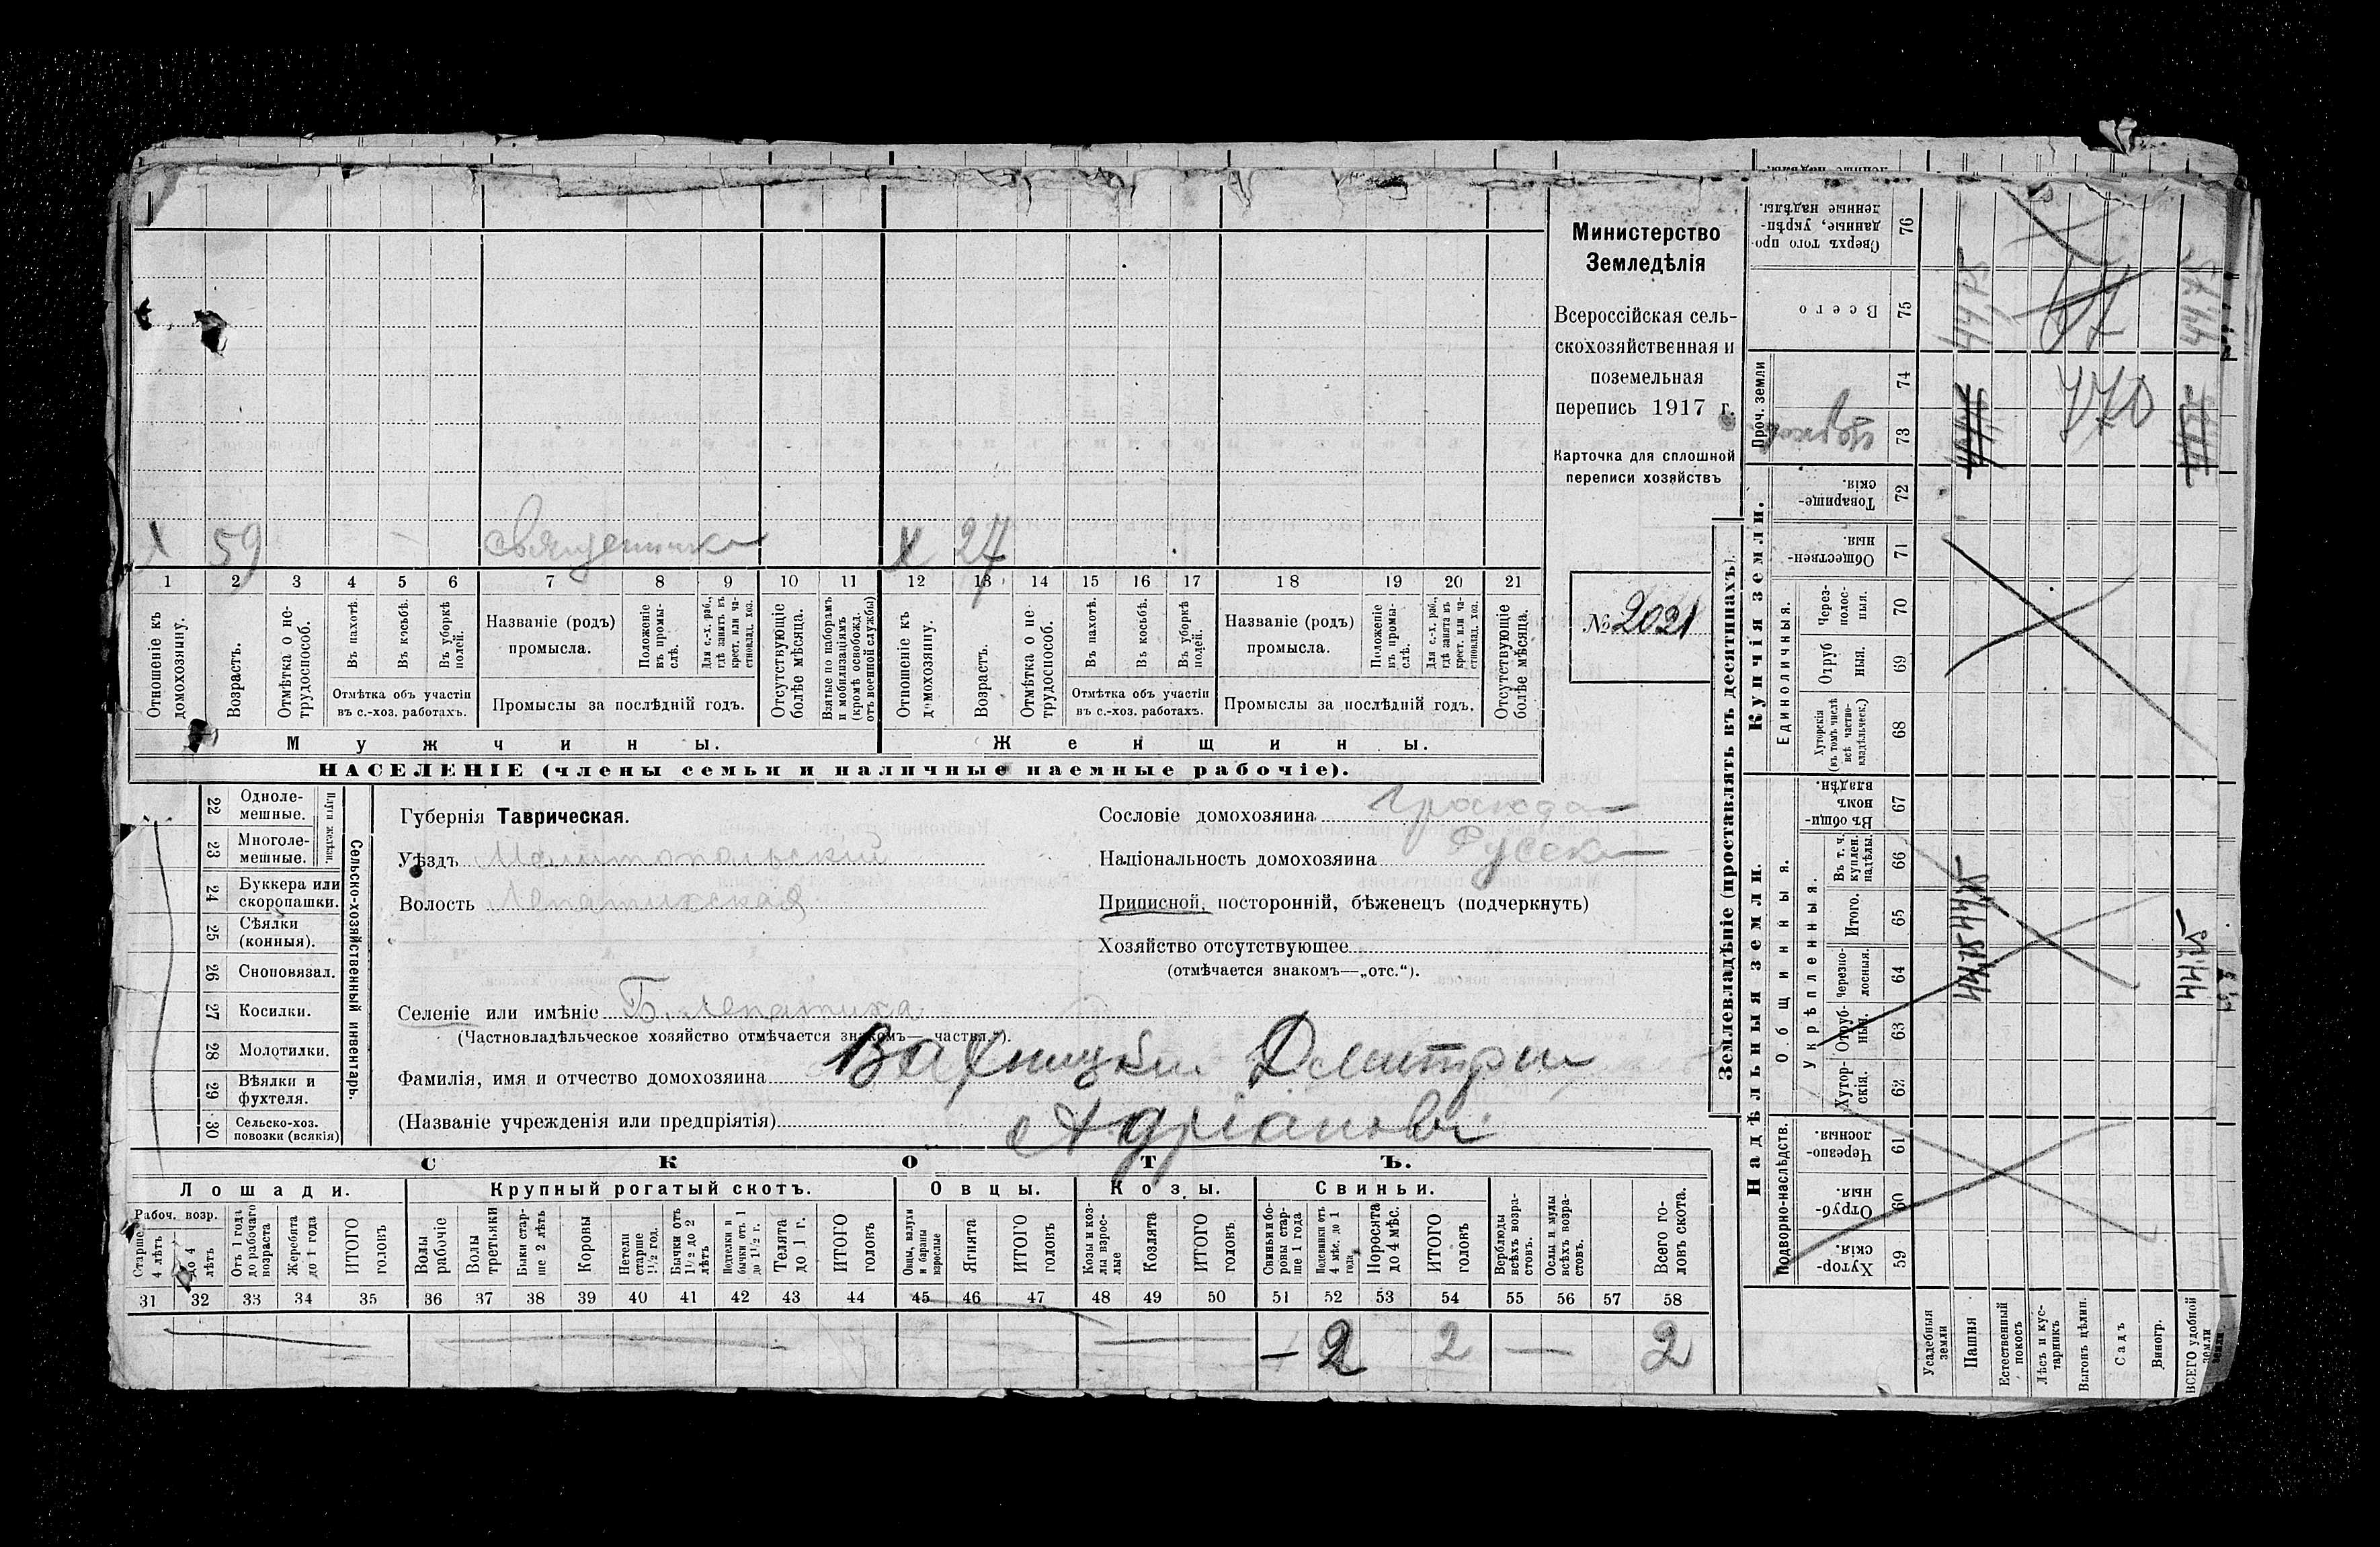 Х 59 священникъ Х 27
1 2 3 4 5 6 7 8 9 10 11 12 13 14 15 16 17 18 19 20 21
Отношеніе къ домохозяину.
Возрастъ.
Отмѣтка о нетрудоспособ.
Въ пахотѣ.
Въ косьбѣ.
Въ уборкѣ полей.
Отмѣтка объ участіи
въ с.-хоз. работахъ.
Названіе (родъ)
промысла.
Положеніе въ промыслѣ.
Для с.-х. раб., гдѣ занятъ въ крест. или частновлад. хоз.
Промыслы за послѣдній годъ.
Отсутствующіе болѣе мѣсяца.
Взятые по наборамъ и мобилизаціямъ (кромѣ освобожд. отъ военной службы)
Отношеніе къ домохозяину.
Возрастъ.
Отмѣтка о нетрудоспособ.
Въ пахотѣ.
Въ косьбѣ.
Въ уборкѣ полей.
Отмѣтка объ участіи
въ с.-хоз. работахъ.
Названіе (родъ)
промысла.
Положеніе въ промыслѣ.
Для с.-х. раб., гдѣ занята въ крест. или частновлад. хоз.
Промыслы за послѣдній годъ.
Отсутствующіе болѣе мѣсяца.
Мужчины.
Женщины.
НАСЕЛЕНІЕ (члены семьи и наличные наемные рабочіе).
Министерство
Земледѣлія
Всероссійская сель-
скохозяйственная и
поземельная
перепись 1917 г.
Карточка для сплошной
переписи хозяйствъ
№ 2021
Сельско-хозяйственный инвентарь.
22 Одноле-
мешные.
23 Многоле-
мешные.
24 Буккера или
скоропашки.
25 Сѣялки
(конныя).
26 Сноповязал.
27 Косилки.
28 Молотилки.
29 Вѣялки и
фухтеля.
30 Сельско-хоз.
повозки (всякія)
Губернія Таврическая.
Уѣздъ Мелитопольскій
Волость Лепатихская
Селеніе или имѣніе Б. Лепатиха
(Частновладѣльческое хозяйство отмѣчается знакомъ—„частвл.“).
Фамилія, имя и отчество домохозяина Вахницкій Дмитрій
(Названіе учрежденія или предпріятія) Адріанов
Сословіе домохозяина
Національность домохозяина Русск
Приписной, посторонній, бѣженецъ (подчеркнуть)
Хозяйство отсутствующее
(отмѣчается знакомъ—„отс.“).
СКОТЪ.
Лошади.
Крупный рогатый скотъ.
Овцы.
Козы.
Свиньи.
Рабоч. возр.
Старше 4 лѣтъ
до 4 лѣтъ
Отъ 1 года до рабочаго возраста
Жеребята до 1 года
ИТОГО головъ
Волы рабочіе
Волы третьяки
Быки старше 2 лѣтъ
Коровы
Нетели старше 1½ год.
Бычки отъ 1½ до 2 лѣтъ
Подтелки и бычки отъ 1 до 1½ г.
Телята до 1 г.
ИТОГО головъ
Овцы, валухи и бараны взрослые
Ягнята
ИТОГО головъ
Козы и козлы взрослые
Козлята
ИТОГО головъ
Свиньи и боровы старше 1 года
Подсвинки отъ 4 мѣс. до 1 года
Поросята до 4 мѣс.
ИТОГО головъ
Верблюды всѣхъ возрастовъ.
Ослы и мулы всѣхъ возрастовъ.
Всего головъ скота.
31 32 33 34 35 36 37 38 39 40 41 42 43 44 45 46 47 48 49 50 51 52 53 54 55 56 57 58
2 2 2
Землевладѣніе (проставлять въ десятинахъ).
Надѣльныя земли.
Купчія земли.
Проч. земли
Подворно-наслѣдств.
Общинныя.
Укрѣпленныя.
Единоличныя.
Хуторскія. 59
Отрубныя 60
Черезполосныя. 61
Хуторскія. 62
Отрубныя. 63
Черезполосныя. 64
Итого. 65
Въ т. ч. куплен. надѣлы 66
Въ общиномъ владѣн. 67
Хуторскія (въ томъ числѣ всѣ частновладѣльческ.) 68
Отрубныя. 69
Черезполосныя. 70
Общественныя. 71
Товарищескія. 72
73
74
Всего 75
Сверхъ того проданные, укрѣпленные надѣлы. 76
Усадебныя земли
Пашня
Естественный покосъ
Лѣсъ и кустарникъ
Выгонъ цѣлин.
Садъ
Виногр.
ВСЕГО удобной земли